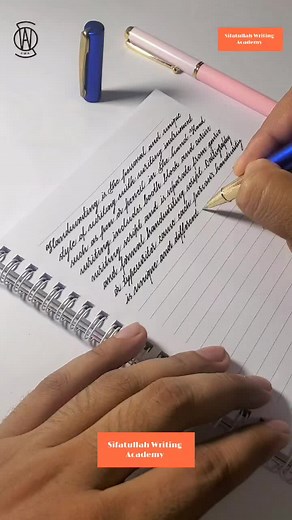 Sifatullah Writing
Academy
Handwriting is the personal and unique
style of writing with a writing instrument
such as pen or pencil in the hand. Hand
writing includes both block and cursive
writing script and is separate from
and formal handwriting script Calligraphy
or typeface
is unique and different
Sifatullah Writing
Academy